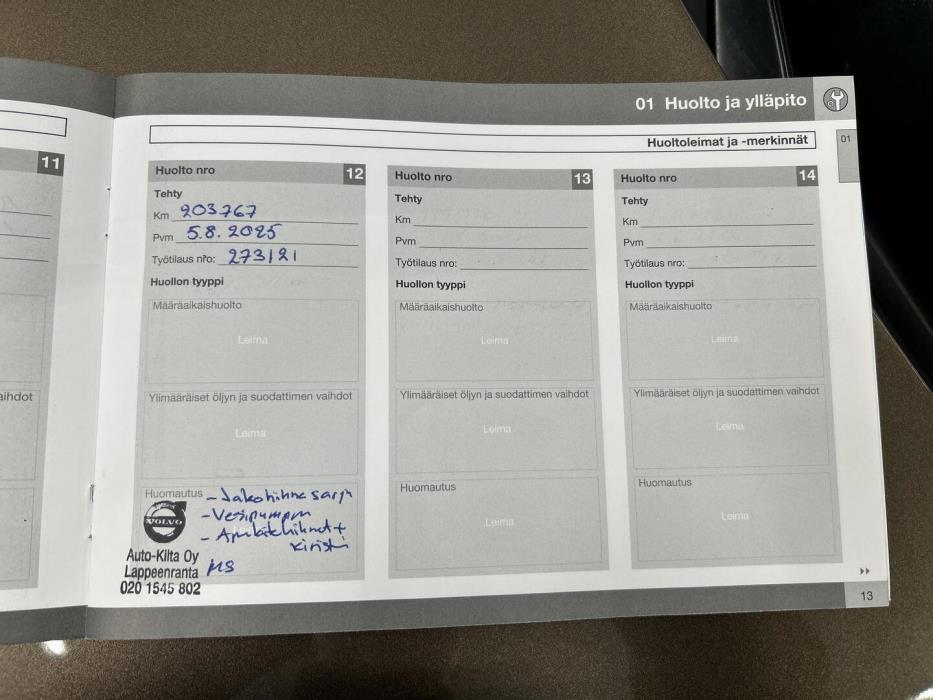 01 Huolto ja ylläpito
Huoltoleimat ja -merkinnät
01
11
aihdot
Huolto nro 12
Tehty
Km 203767
Pvm 5.8.2025
Työtilaus nro: 273121
Huollon tyyppi
Määräaikaishuolto
Leima
Ylimääräiset öljyn ja suodattimen vaihdot
Leima
Huomautus - Jakohihna sarja
- Vesipumppu
- Apulaitehihnat +
kiristi
VOLVO
Auto-Kilta Oy
Lappeenranta
020 1545 802
MS
Huolto nro 13
Tehty
Km
Pvm
Työtilaus nro:
Huollon tyyppi
Määräaikaishuolto
Leima
Ylimääräiset öljyn ja suodattimen vaihdot
Leima
Huomautus
Leima
Huolto nro 14
Tehty
Km
Pvm
Työtilaus nro:
Huollon tyyppi
Määräaikaishuolto
Leima
Ylimääräiset öljyn ja suodattimen vaihdot
Leima
Huomautus
Leima
13